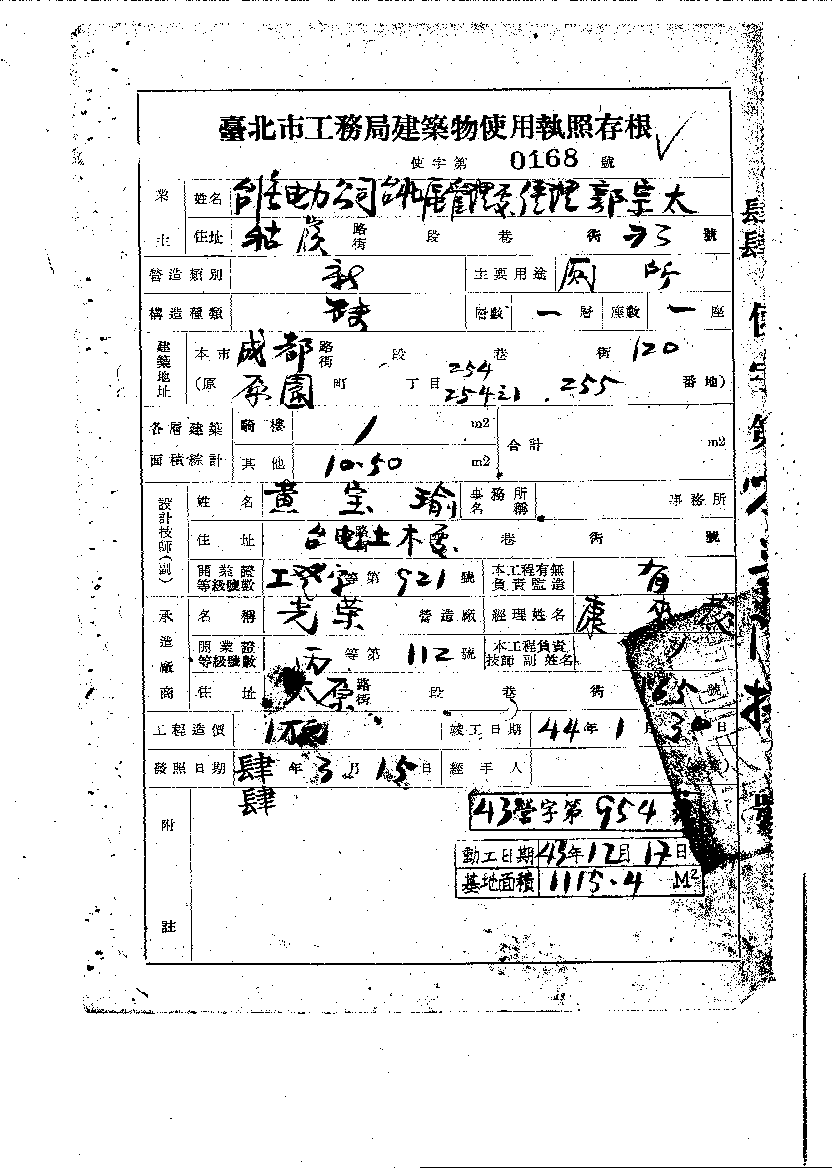 臺北市工務局建築物使用執照存根
使字第 0168 號
業主 姓名 電力公司 郭宗太
住址 路街 段 巷 街 號
營造類別 新 主要用途 厠所
構造種類 層數 一 層 座數 一 座
建築地址 本市 成都 路街 段 巷 街 120
(原 町 丁目 254 255 番地)
各層建築面積綜計 騎樓 / m2 合計 m2
其他 10.50 m2
設計技師(副) 姓名 黃宝瑜 事務所名稱 事務所
住址 台電土木 巷 街 號
開業證等級號數 等第 921 號 本工程有無負責監造 有
承造廠商 名稱 光葉 營造廠 經理姓名 康
開業證等級號數 丙 等第 112 號 本工程負責技師副姓名
住址 太原 路街 段 巷 街 165 號
工程造價 竣工日期 44年1月30日
發照日期 肆肆 年 3 月 15 日 經手人
附註
43營字第954
動工日期 43年12月17日
基地面積 1115.4 M²
肆肆